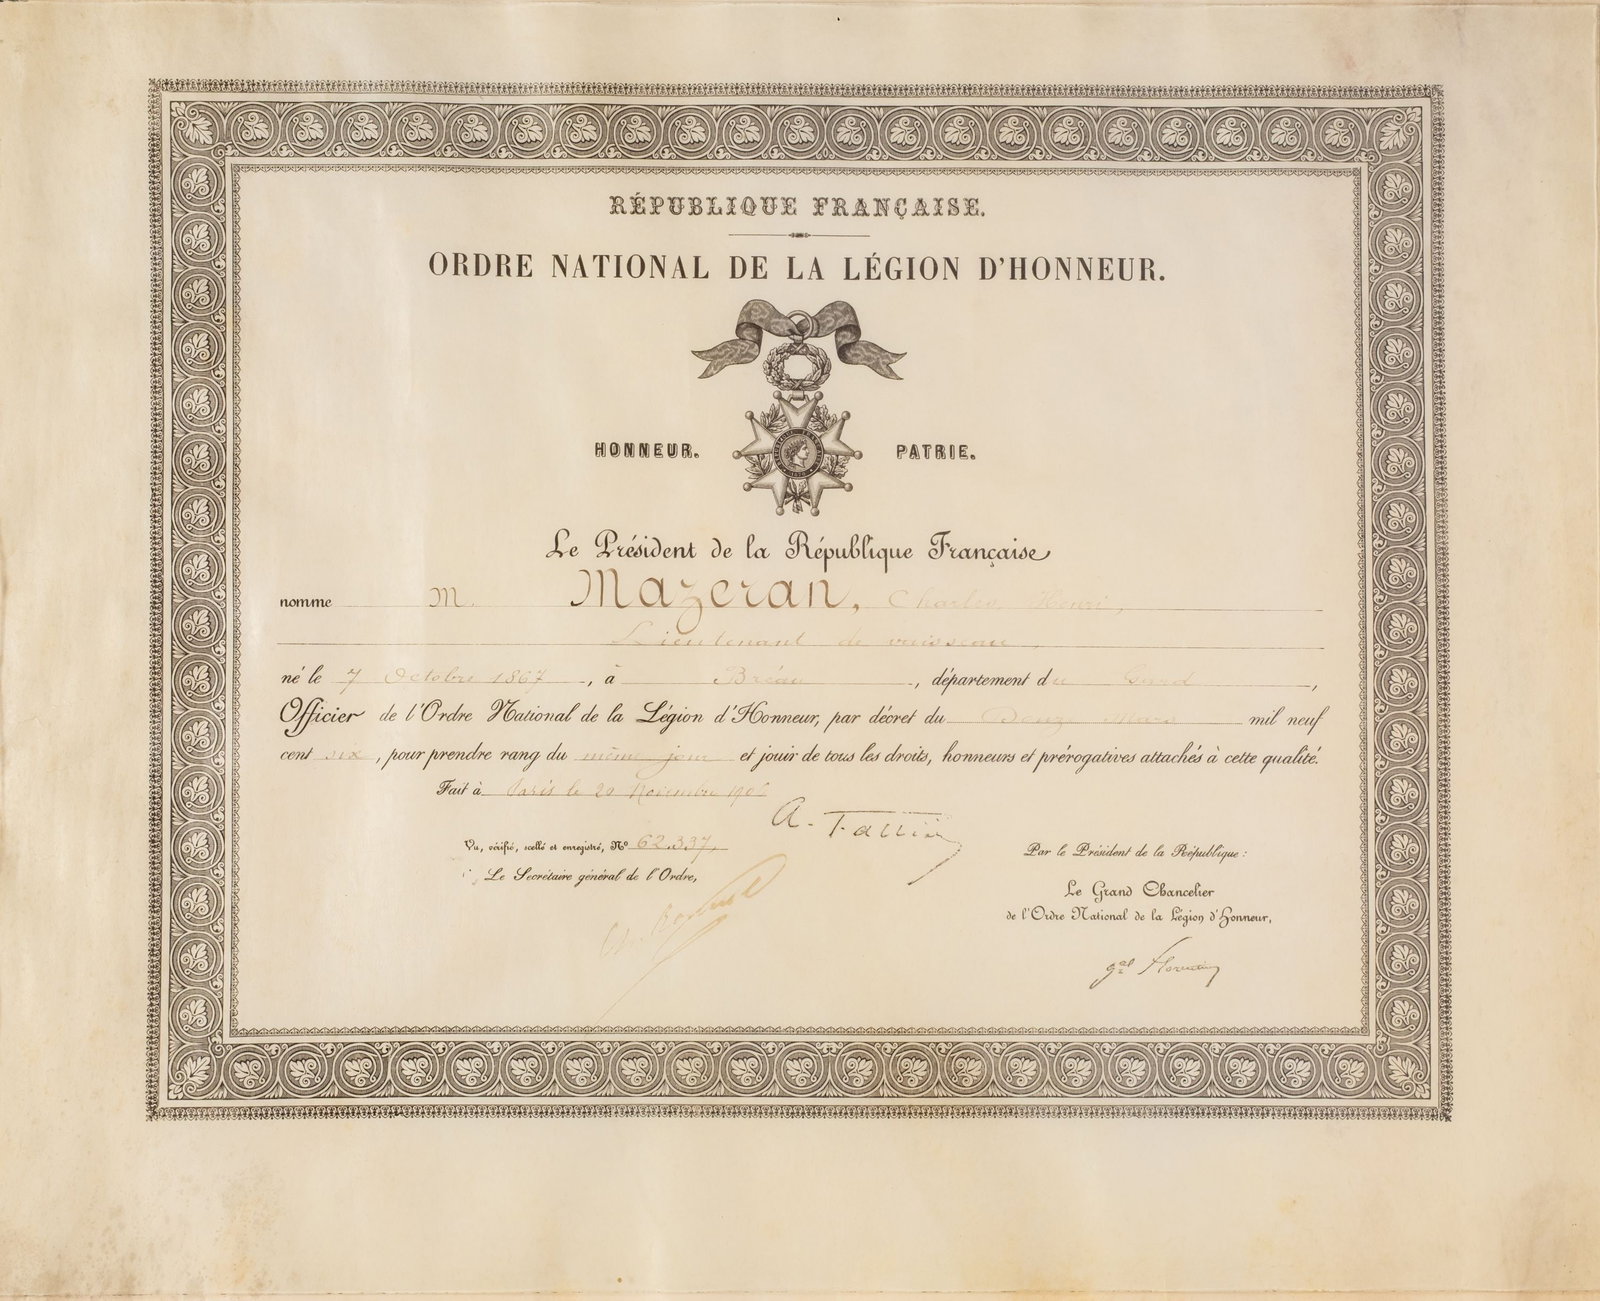 RÉPUBLIQUE FRANÇAISE.
ORDRE NATIONAL DE LA LÉGION D'HONNEUR.
HONNEUR. PATRIE.
Le Président de la République Française
nomme M. Mazeran, Charles Henri,
Lieutenant de vaisseau,
né le 7 Octobre 1867, à Bréau, département du Gard,
Officier de l'Ordre National de la Légion d'Honneur, par décret du Douze Mars mil neuf
cent six, pour prendre rang du même jour et jouir de tous les droits, honneurs et prérogatives attachés à cette qualité.
Fait à Paris le 20 Novembre 1906
A. Fallières
Vu, vérifié, scellé et enregistré, No 62.337,
Le Secrétaire général de l'Ordre,
Par le Président de la République :
Le Grand Chancelier
de l'Ordre National de la Légion d'Honneur,
gal Florentin